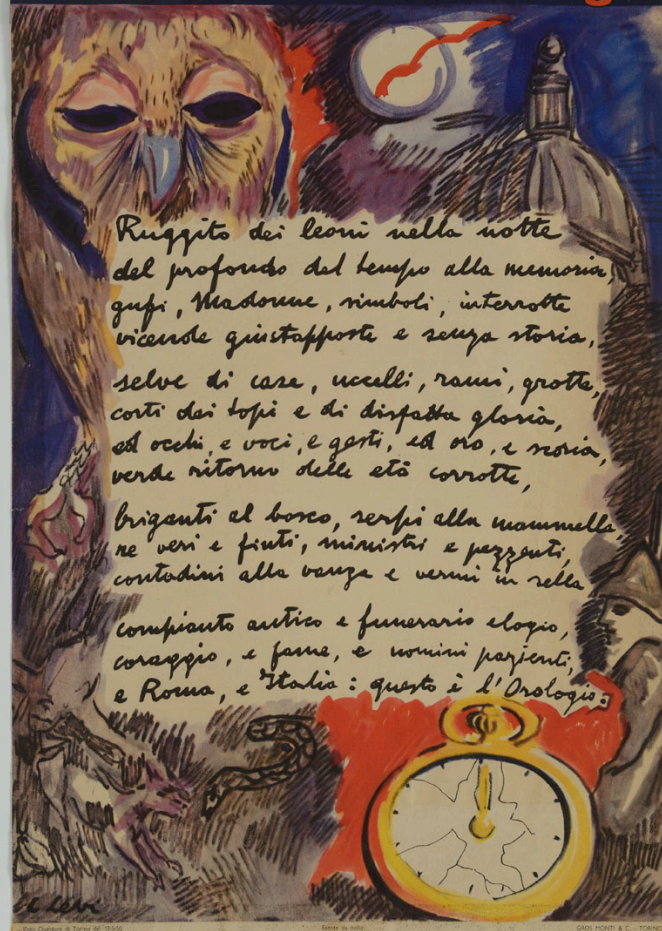 Ruggito dei leoni nella notte
dal profondo del tempo alla memoria,
gufi, Madonne, simboli, interrotte
vicende giustapposte e senza storia,
selve di case, uccelli, rami, grotte,
corti dei topi e di disfatta gloria,
ed occhi, e voci, e gesti, ed oro, e scoria,
verde ritorno delle età corrotte,
briganti al bosco, serpi alla mammella,
re veri e finti, ministri e pezzenti,
contadini alla vanga e vermi in sella
compianto antico e funerario elogio,
coraggio, e fame, e uomini pazienti,
e Roma, e Italia: questo è l'Orologio.
C. Levi
GROS MONTI & C. - TORINO